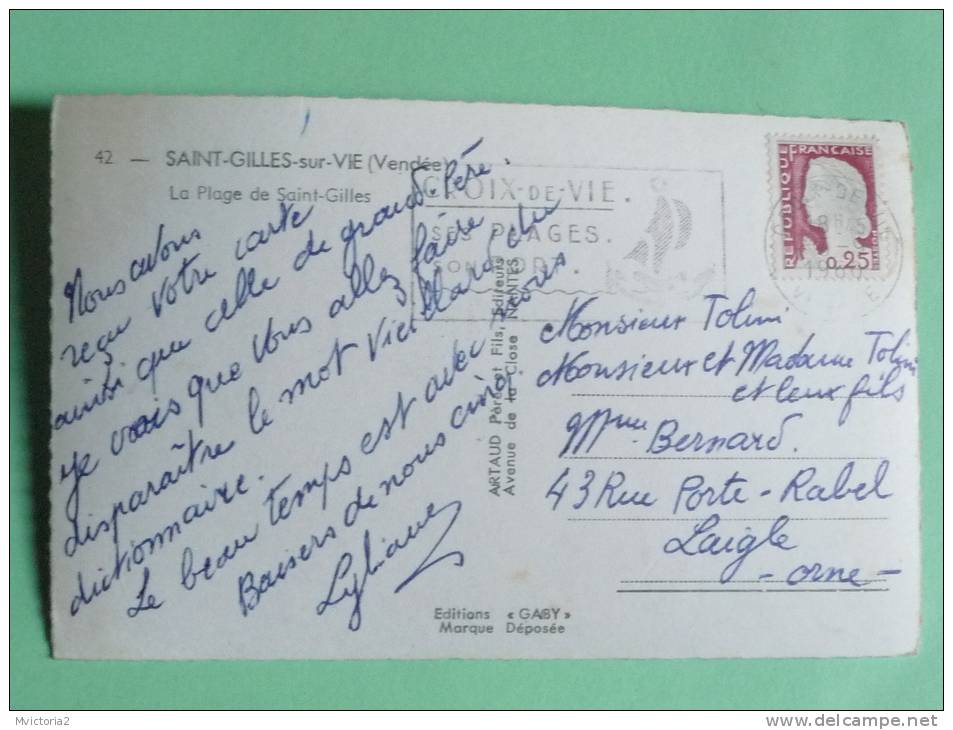 42 — SAINT-GILLES-sur-VIE (Vendée)
La Plage de Saint-Gilles
Nous avons
reçu votre carte
ainsi que celle de grand Péré
je vois que vous allez faire
disparaître le mot vieillard du
dictionnaire.
Le beau temps est avec nous
Baisers de nous cinq.
Lyliane
CROIX-DE-VIE.
SES PLAGES.
SON PORT.
REPUBLIQUE FRANÇAISE
0.25
POSTES
ARTAUD Père et Fils, Editeurs
Avenue de la Close NANTES
Monsieur Tolini
Monsieur et Madame Tolini
et leux fils
Mme Bernard.
43 Rue Porte-Rabel
Laigle
-Orne-
Editions « GABY »
Marque Déposée
Mvictoria2
www.delcampe.net